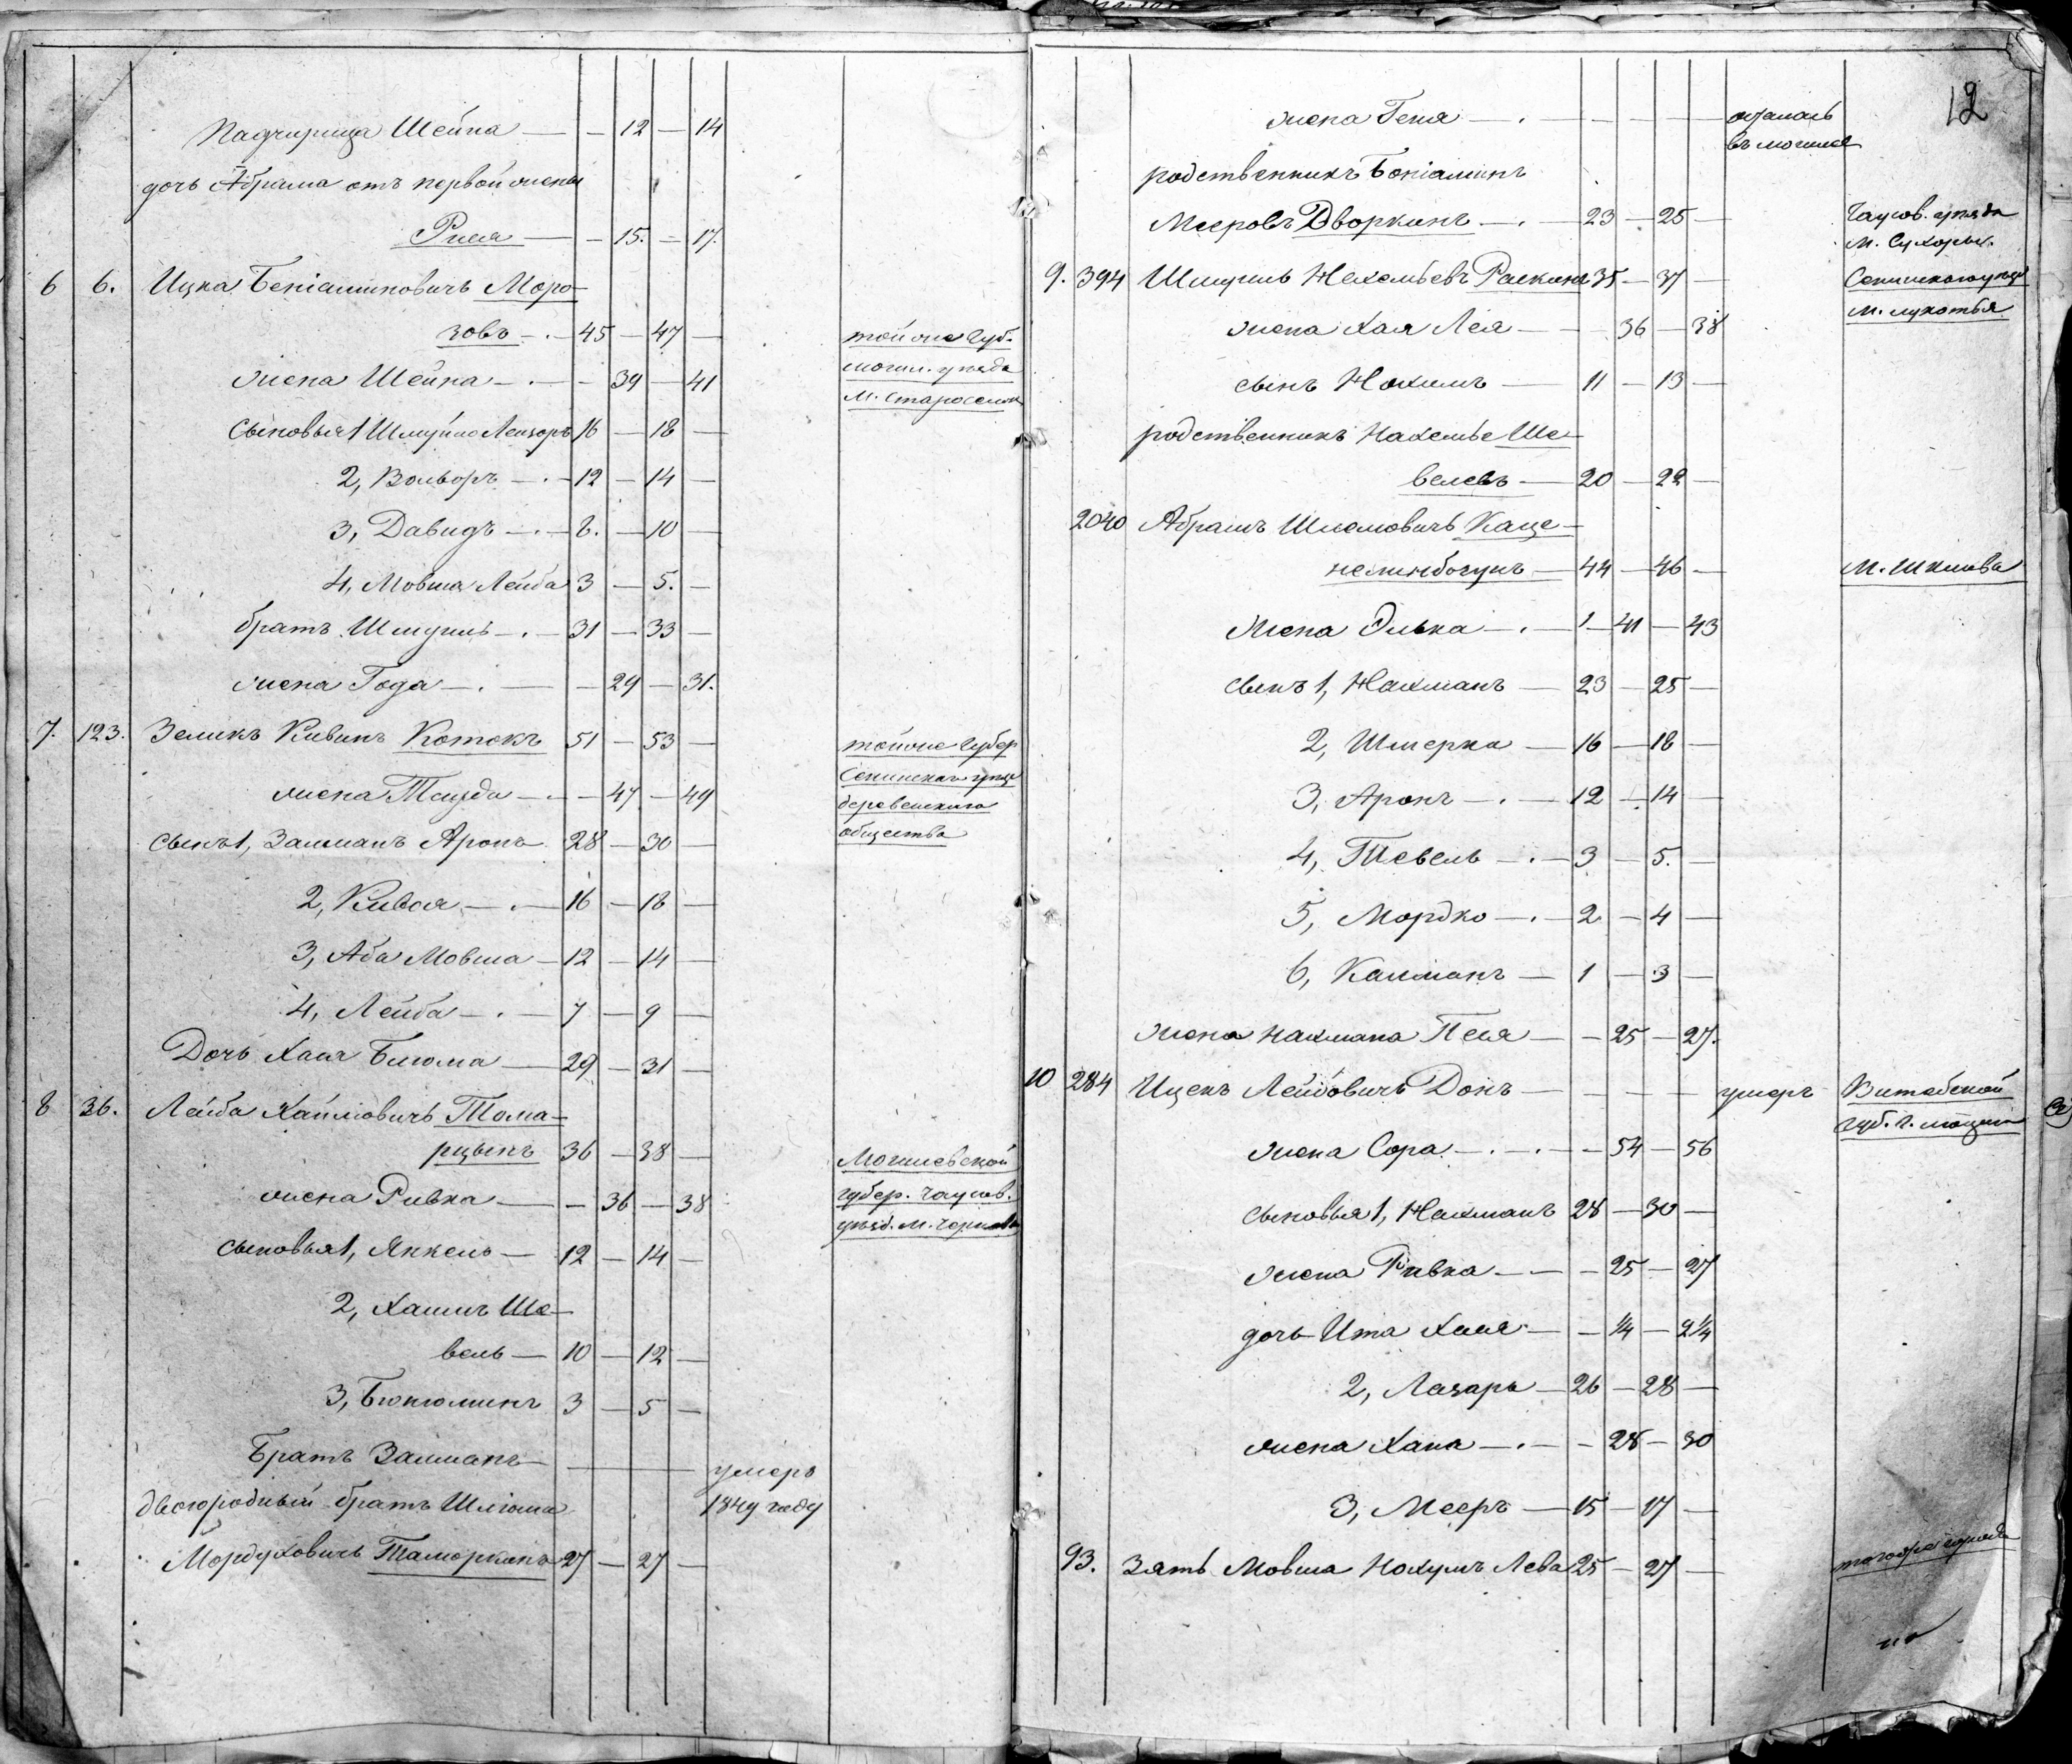 Падчерица Шейна — — 12 — 14
дочь Абрама отъ первой жены
Рися — — 15. — 17.
6 6. Ицка Беніаминовичъ Моро-
зовъ — 45 — 47 — тойже Губ.
могил. уезда
жена Шейна — — 39 — 41
М. Староселья
Сыновья 1 Шмуйло Лейзоръ 16 — 18 —
2, Вольфъ — 12 — 14 —
3, Давидъ — 8. — 10 —
4, Мовша Лейба 3 — 5. —
братъ Шмуиль — 31 — 33 —
жена Года — — 29 — 31.
7. 123. Зеликъ Кивинъ Котокъ 51 — 53 — тойже Губер
Сенинскаго уезд
жена Тауба — — 47 — 49 деревенскаго
сынъ 1, Залманъ Аронъ 28 — 30 — общества
2, Кивоя — 16 — 18 —
3, Аба Мовша — 12 — 14 —
4, Лейба — 7 — 9 —
Дочь Хая Блюма — 29 — 31 —
8 36. Лейба Хаимовичъ Тома-
рцынъ 36 — 38 — Могилевской
жена Ривка — — 36 — 38 губер. Чаусов.
уезд. М.
сыновья 1, Янкель — 12 — 14 —
2, Хаимъ Ше-
вель — 10 — 12 —
3, Бенюминъ 3 — 5 —
Братъ Залманъ — умеръ
двоюродный братъ Шліома 1849 году
Мордуховичъ Таморкинъ 27 — 27 —
12
жена Геня — осталась
въ могилеве
родственникъ Беніаминъ
Мееровъ Дворкинъ — 23 — 25 — Чаусов. уезда
М. Сухары.
9. 394 Шмуиль Нехемьевъ Раскинъ 35 — 37 — Сенинскаго уезд
М. Лукомья
жена Хая Лея — — 36 — 38
сынъ Нохимъ — 11 — 13 —
родственникъ Нахемье Ше-
велевъ — 20 — 22 —
2040 Абрамъ Шлемовичъ Каце-
неленбогунъ — 44 — 46 — М. Шклова
жена Элька — — 41 — 43
сынъ 1, Нахманъ — 23 — 25 —
2, Шмерка — 16 — 18 —
3, Аронъ — 12 — 14 —
4, Тевель — 3 — 5. —
5, Мордко — 2 — 4 —
6, Калманъ — 1 — 3 —
жена Нахмана Песя — — 25 — 27.
10 284 Ицекъ Лейбовичъ Донъ — умеръ Витебской
губ. г.
жена Сора — — 54 — 56
сыновья 1, Нахманъ 28 — 30 —
жена Ривка — — 25 — 27
дочь Ита Хая — — 1/4 — 2 1/4
2, Лазарь — 26 — 28 —
жена Хана — — 28 — 30
3, Мееръ — 15 — 17 —
93. Зять Мовша Нохумъ Лева 25 — 27 — тогоже города